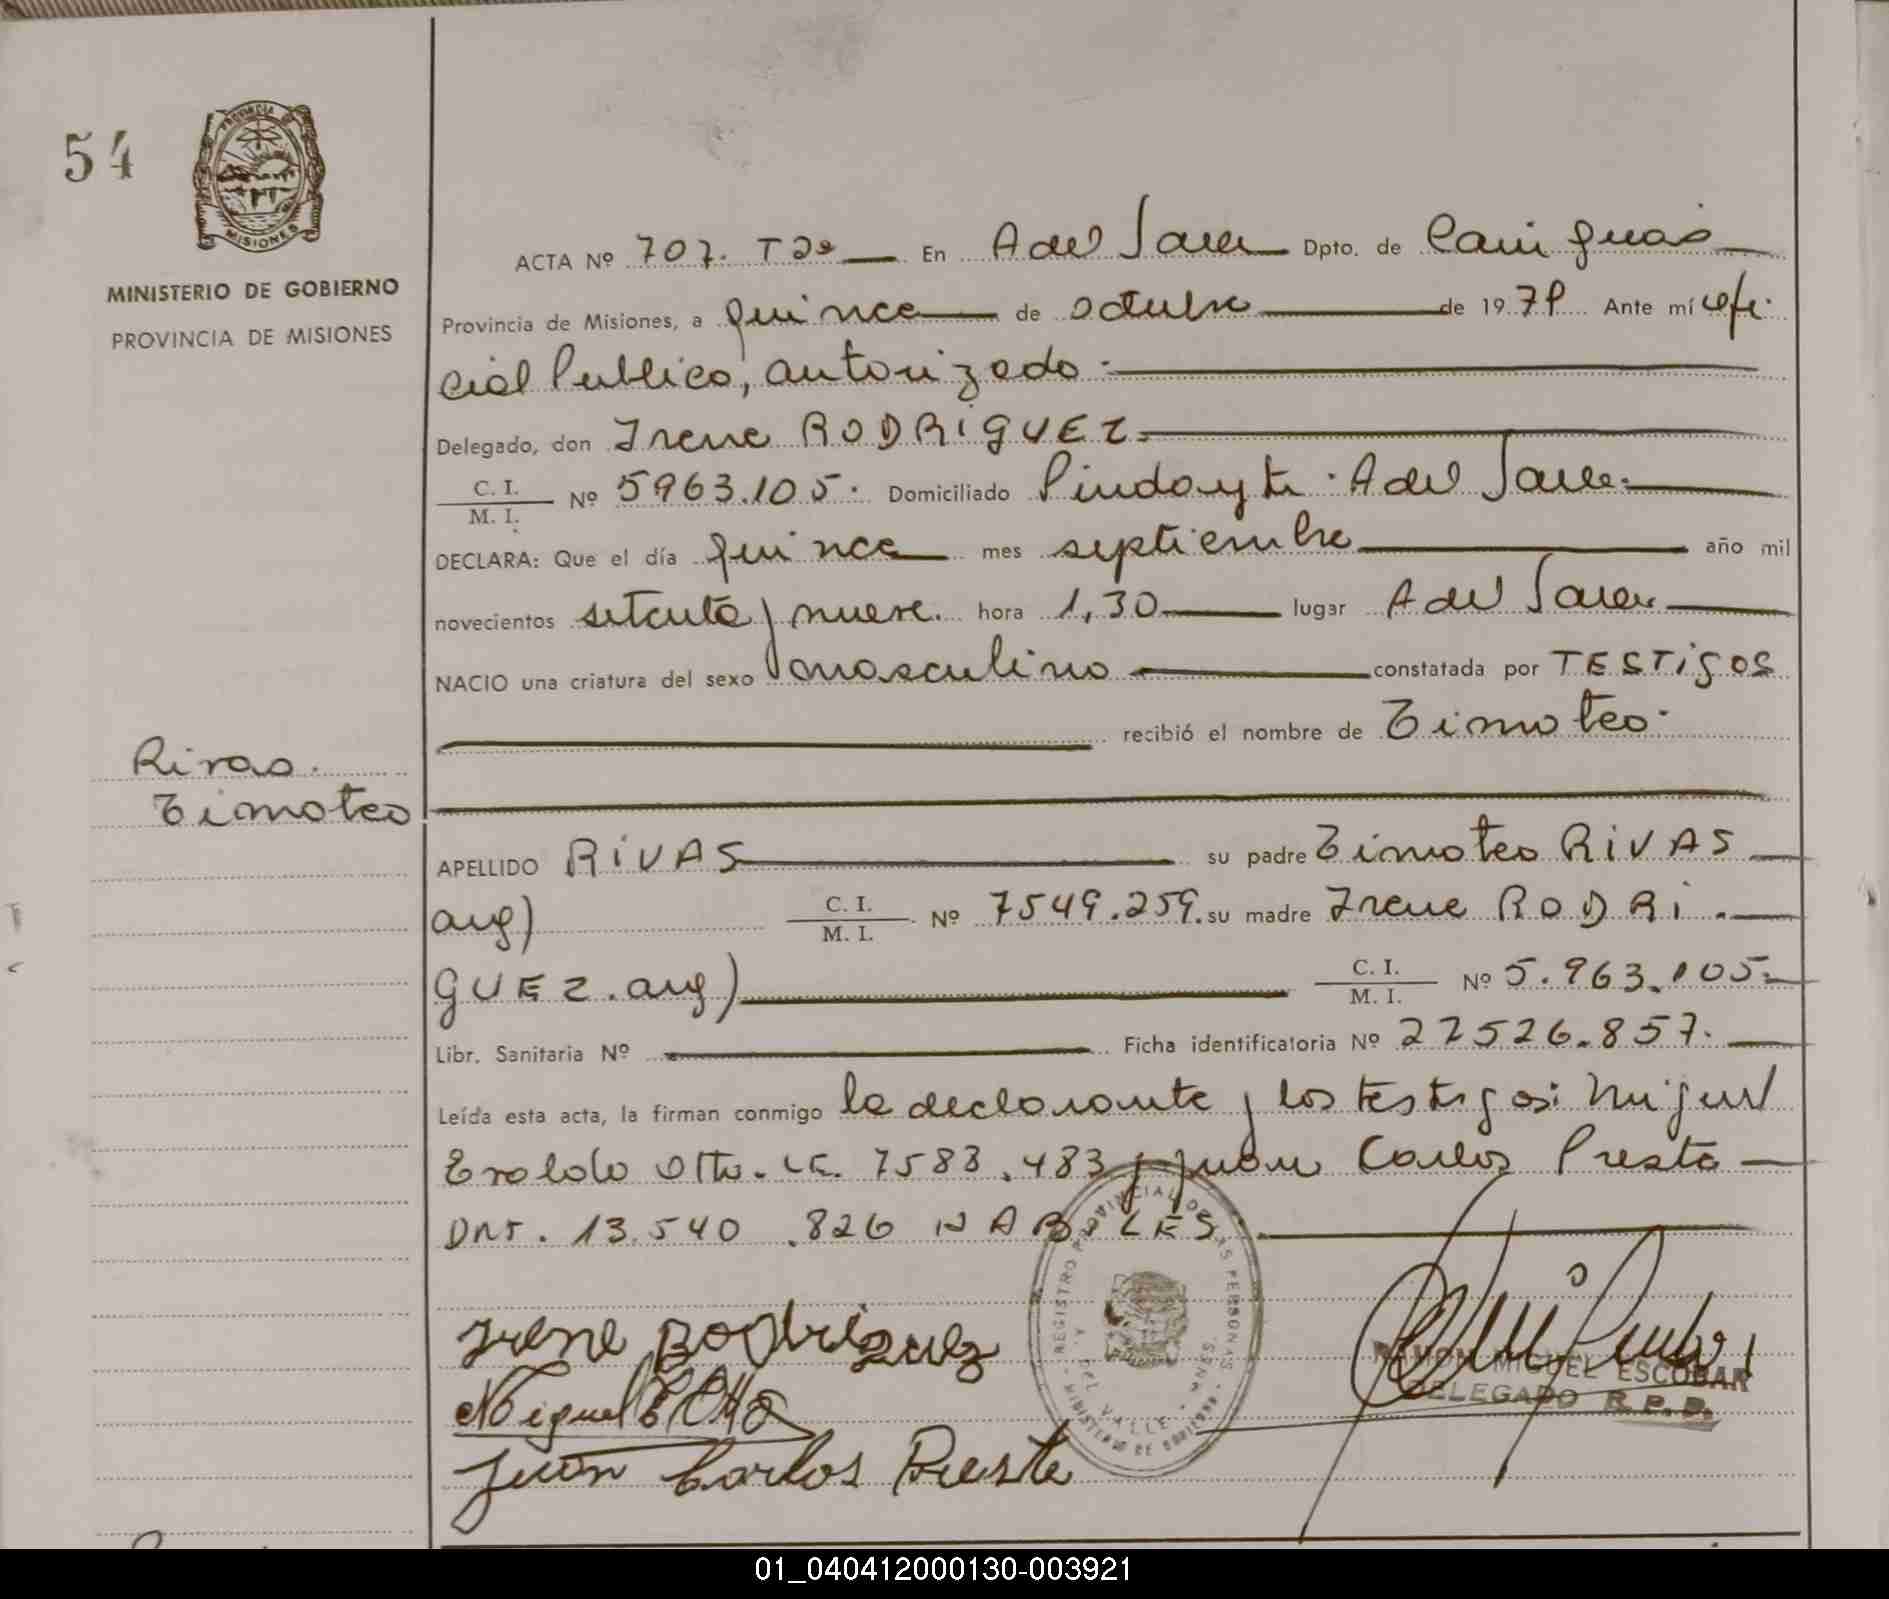 54
PROVINCIA DE
MISIONES
MINISTERIO DE GOBIERNO
PROVINCIA DE MISIONES
ACTA Nº 707. T 2º En A del Valle Dpto. de Cainguás
Provincia de Misiones, a quince de octubre de 1979 Ante mí ofi
cial Publico, autorizado
Delegado, don Irene RODRIGUEZ.
C. I. / M. I. Nº 5963.105. Domiciliado Pindayti. A del Valle
DECLARA: Que el día quince mes septiembre año mil
novecientos setenta y nueve. hora 1,30 lugar A del Valle
NACIO una criatura del sexo masculino constatada por TESTigos
recibió el nombre de Timoteo.
Rivas.
Timoteo
APELLIDO RIVAS su padre Timoteo RIVAS
arg) C. I. / M. I. Nº 7549.259. su madre Irene RODRI.
GUEZ. arg) C. I. / M. I. Nº 5.963.105.
Libr. Sanitaria Nº Ficha identificatoria Nº 27526.857.
Leída esta acta, la firman conmigo la declarante y los testigos: Miguel
Eroldo Otto. LE. 7583.483 y Juan Carlos Presta
DNI. 13.540.826 HABILES
Irene Rodriguez
Miguel E Otto
Juan Carlos Presta
REGISTRO PROVINCIAL DE LAS PERSONAS
A. DEL VALLE - MNES.
MINISTERIO DE GOBIERNO
RAMON MIGUEL ESCOBAR
DELEGADO R.P.P.
01_040412000130-003921